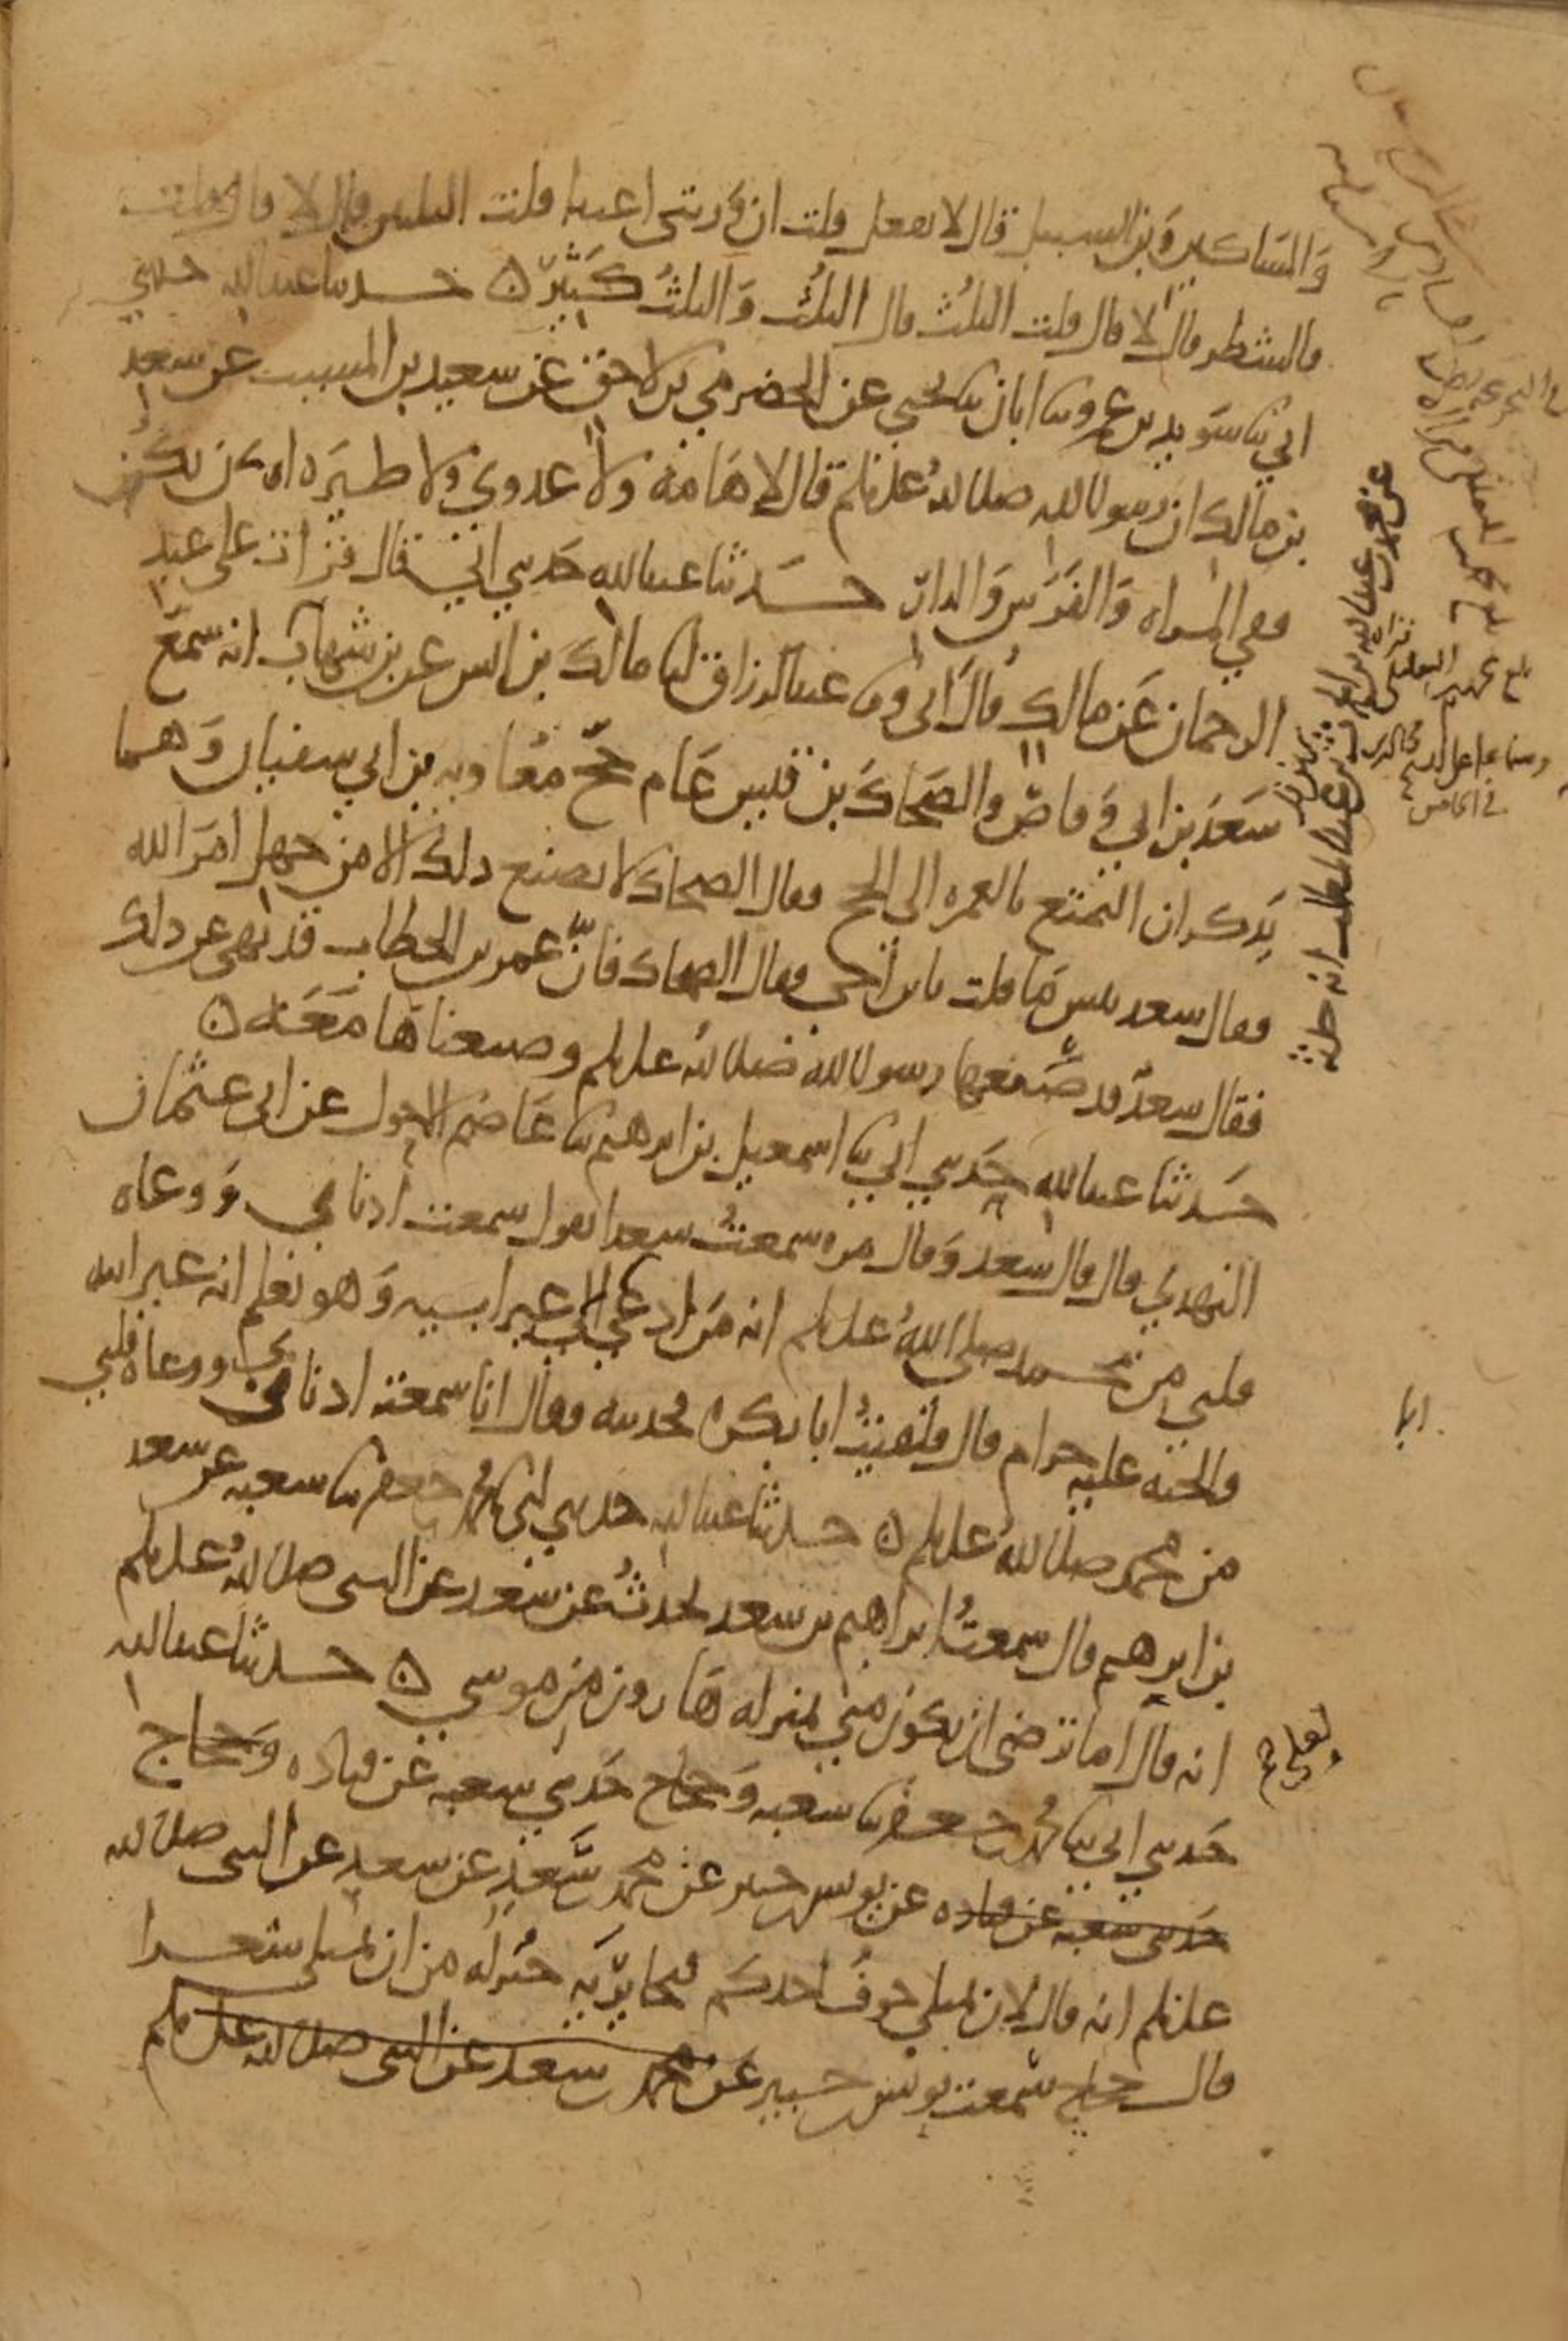 والمساكين وبن السبيل قال لا تفعل قلت ان ورثتي اغنيا قلت الثلثين قال لا قال قلت
فالشطر قال لا قال قلت الثلث قال الثلث والثلث كثير ه حدثنا عبد الله حدثني
ابي ثنا سويد بن عمرو ثنا ابان ثنا يحيى عن الحضرمي بن لاحق عن سعيد بن المسيب عن سعد
بن مالك ان رسول الله صلى الله عليه وسلم قال لا هامة ولا عدوى ولا طيره ان يكن
ففي المراه والفرس والدار حدثنا عبد الله حدثني ابي قال قرات على عبد
الرحمان عن مالك قال ابي وثنا عبد الرزاق انا مالك بن انس عن بن شهاب انه سمع
سعد بن ابي وقاص والضحاك بن قيس عام حج معاويه بن ابي سفيان وهما
يذكران التمتع بالعمره الى الحج فقال الضحاك لا يصنع ذلك الا من جهل امر الله
فقال سعد بئس ما قلت يابن اخي فقال الضحاك فان عمر بن الخطاب قد نهى عن ذلك
فقال سعد قد صنعها رسول الله صلى الله عليه وسلم وصنعناها معه ه
حدثنا عبد الله حدثني ابي ثنا اسمعيل بن ابرهيم ثنا عاصم الاحول عن ابي عثمان
النهدي قال قال سعد وقال مره سمعت سعدا يقول سمعت اذناي ووعاه
قلبي من محمد صلى الله عليه وسلم انه من ادعي الى غير ابيه وهو يعلم انه غير ابيه
فالجنه عليه حرام قال فلقيت ابا بكره فحدثته فقال انا سمعته اذناي ووعاه قلبي
من محمد صلى الله عليه وسلم ه حدثنا عبد الله حدثني ابي ثنا محمد بن جعفر ثنا شعبه عن سعد
بن ابرهيم قال سمعت ابراهيم بن سعد يحدث عن سعد عن النبي صلى الله عليه وسلم
انه قال اما ترضى ان تكون مني بمنزله هارون من موسى ه حدثنا عبد الله
حدثني ابي ثنا محمد بن جعفر ثنا شعبه وحجاج حدثني شعبه عن قتاده وحجاج
حدثني شعبه عن قتاده عن يونس بن جبير عن محمد بن سعد عن سعد عن النبي صلى الله
عليه وسلم انه قال لان يمتلي جوف احدكم قيحا يريه خير له من ان يمتلي شعرا
قال حجاج سمعت يونس بن جبير عن محمد بن سعد عن النبي صلى الله عليه وسلم